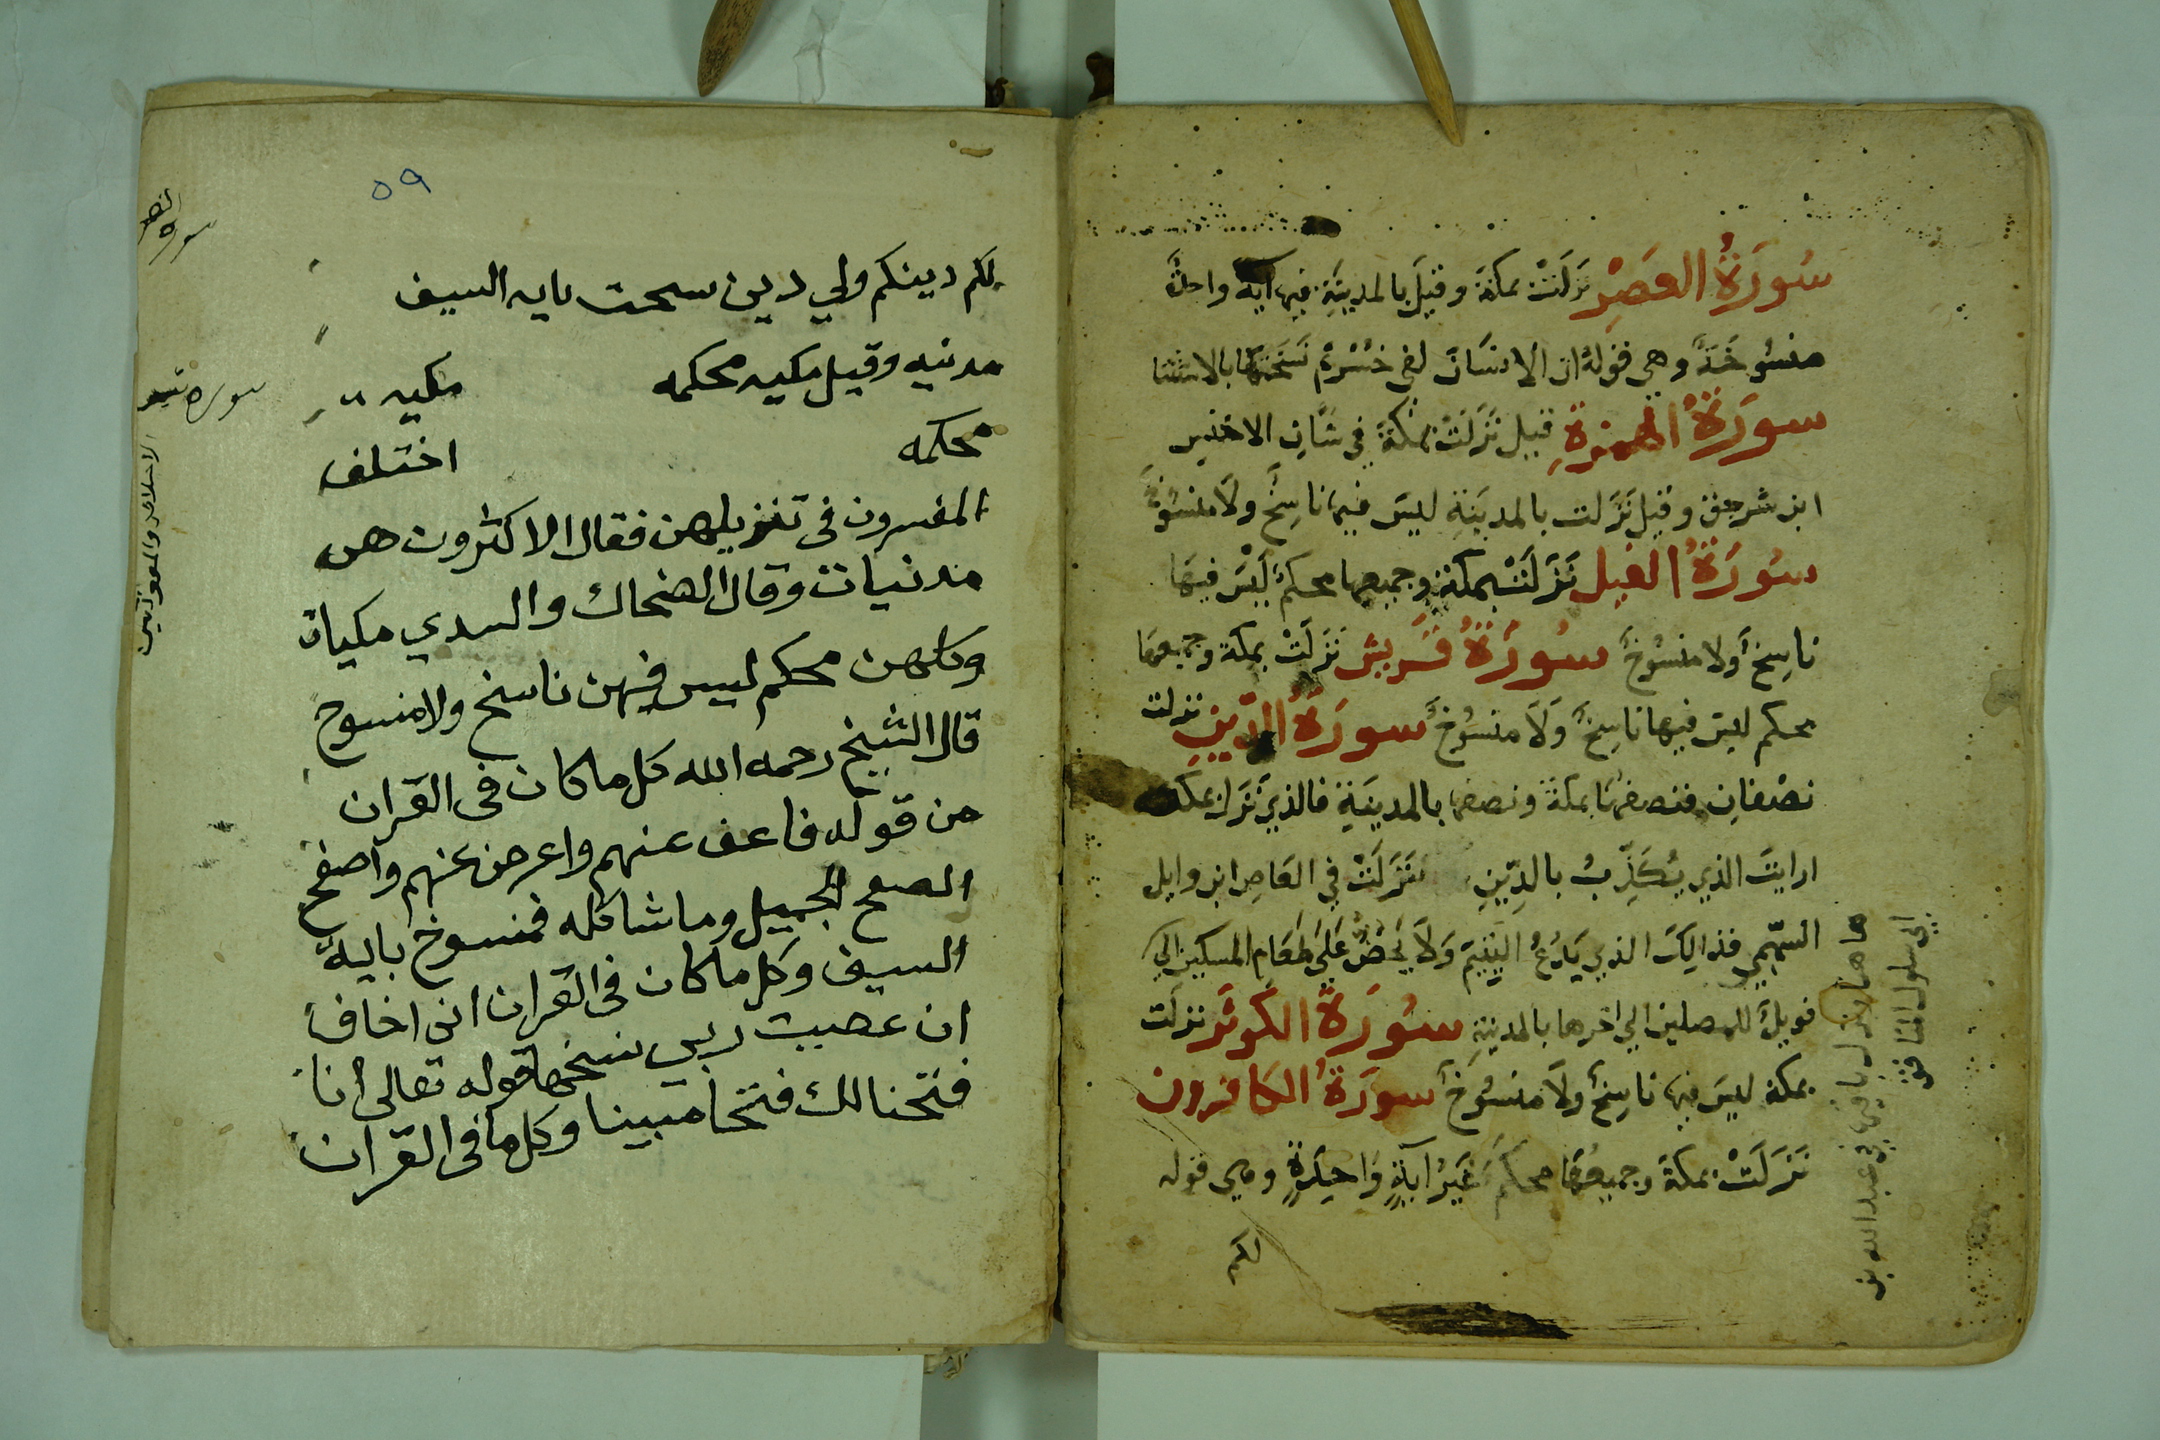 سُورَةُ العَصْرِ نَزَلَتْ بمكةَ وقيلَ بالمدينَةِ فيها آيةٌ واحدةٌ
منسُوخَةٌ وهي قولهُ ان الانسَانَ لفي خسْرٍ ثم نَسَختهَا بالاستثنا
سورَةُ الهمزةِ قيل نَزَلَتْ بمكةَ في شَانِ الاخنس
ابن شريق وقيل نَزَلت بالمدينَةِ ليسَ فيها ناسِخٌ ولَا منسُوخٌ
سُورَةُ الفيل نَزَلَتْ بمكةَ وجميعها محكمٌ لَيْسَ فيهَا
ناسِخٌ ولا منسُوخٌ سُورَةُ قُرَيش نَزَلَتْ بمكة وجميعهَا
محكم ليسَ فيها ناسِخٌ وَلَا منسُوخٌ سورَةُ الدِّينِ نزلت
نصْفانِ فنصفهَا بمكةَ ونصفها بالمدينَةِ فالذي نَزَلَ بمكة
ارايتَ الذي يُكَذِّبُ بالدِّينِ نَزَلَتْ في العَاصِ ابن وايل
السّهمِي فذالِكَ الذي يَدُعُّ اليَتِيمَ وَلَا يَحُضُّ عَلَى طَعَامِ المسكين الي
فويلٌ للمصلين الي اخرها بالمدينةِ سُورَةُ الكَوثَر نزلَت
بمكة ليسَ فيها ناسِخٌ ولَا منسُوخٌ سورَةُ الكَافرون
نَزَلَتْ بمكةَ وجميعُهَا محكمٌ غَيْرُ آيَةٍ وَاحِدَةٍ وهي قوله
لكم
ها هنا نزل باقي في عبد الله بن
ابي سلول المنافق
٥٩
سورة النصر
سورة تبت
الاخلاص والمعوذتين
لكم دينكم ولي دين نسخت بايه السيف
مدنيه وقيل مكيه محكمه مكيه
محكمه اختلف
المفسرون في تنزيلهن فقال الاكثرون هن
مدنيات وقال الضحاك والسدي مكيات
وكلهن محكم ليس فيهن ناسخ ولا منسوخ
قال الشيخ رحمه الله كل ما كان في القران
من قوله فاعف عنهم واعرض عنهم واصفح
الصفح الجميل وما شاكله فمنسوخ باية
السيف وكل ما كان في القران اني اخاف
ان عصيت ربي نسخها قوله تعالى انا
فتحنا لك فتحا مبينا وكل ما في القران